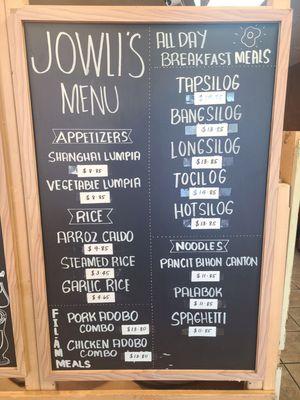 JOWLI'S
MENU
APPETIZERS
SHANGHAI LUMPIA
$8.85
VEGETABLE LUMPIA
$8.85
RICE
ARROZ CALDO
$9.85
STEAMED RICE
$3.45
GARLIC RICE
$4.65
FILAM
MEALS
PORK ADOBO
COMBO $13.80
CHICKEN ADOBO
COMBO $13.80
ALL DAY
BREAKFAST MEALS
TAPSILOG
BANGSILOG
$13.85
LONGSILOG
$13.85
TOCILOG
$14.85
HOTSILOG
$13.85
NOODLES
PANCIT BIHON CANTON
$11.85
PALABOK
$11.85
SPAGHETTI
$11.85